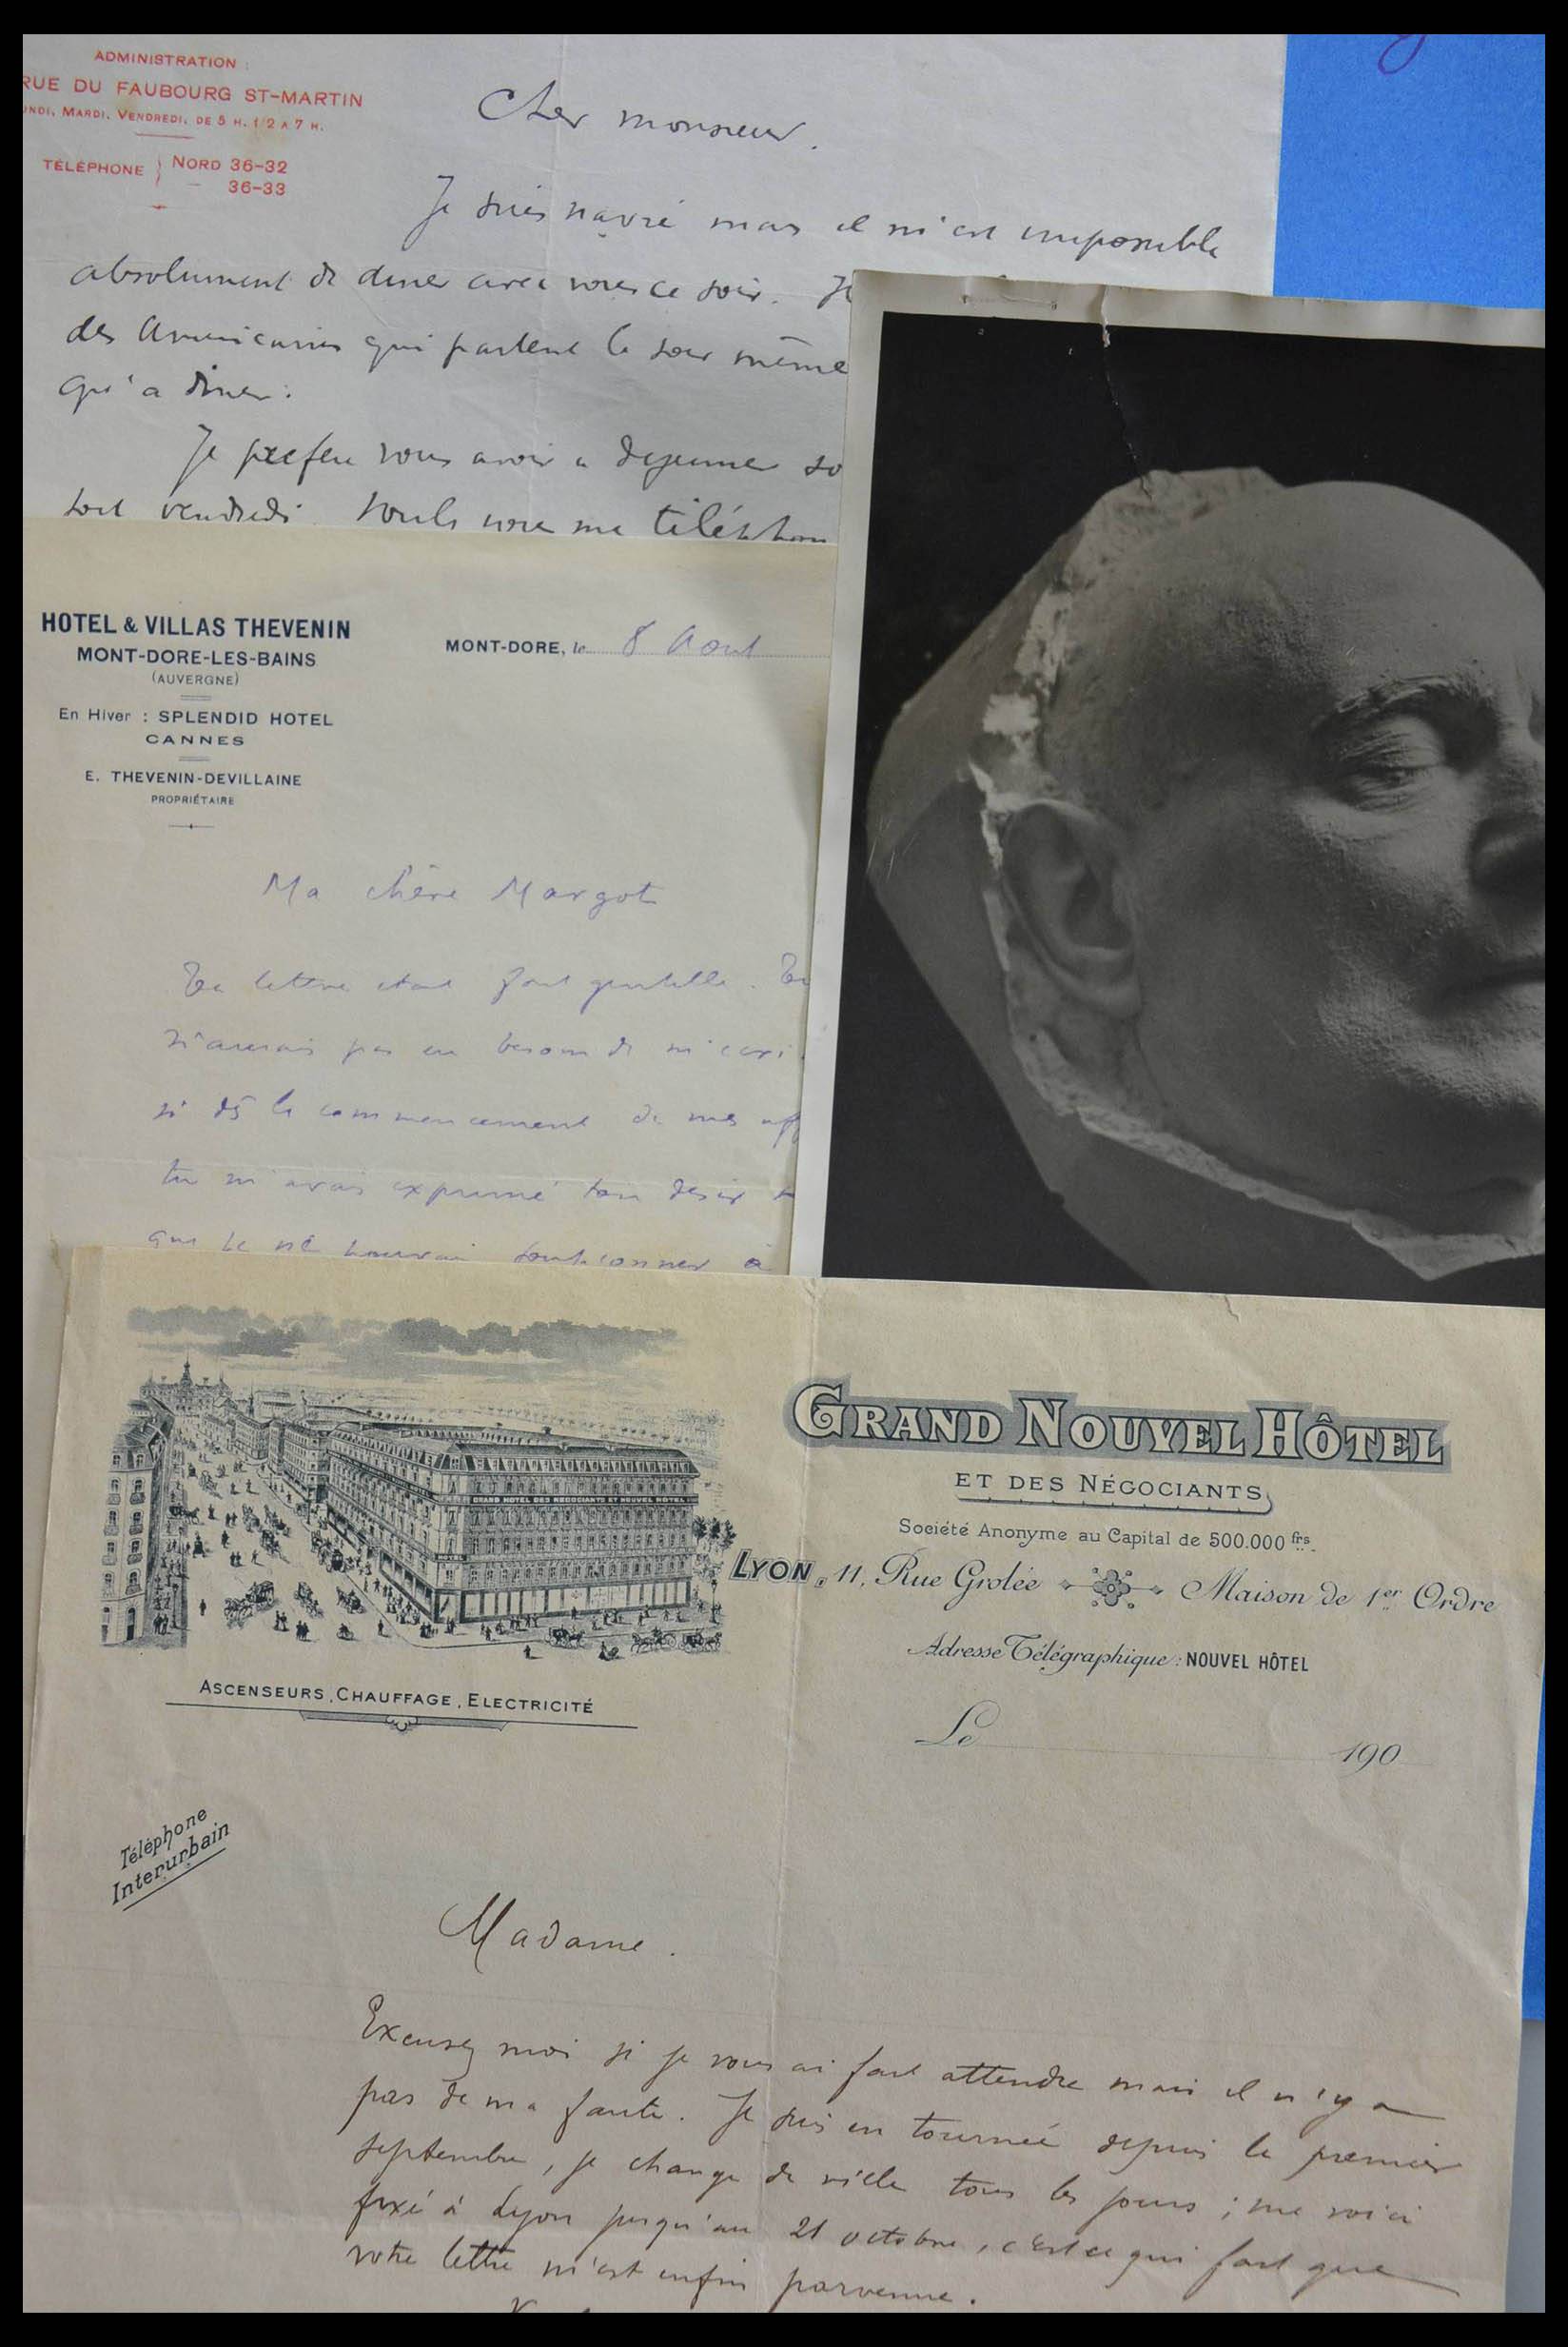 ADMINISTRATION :
RUE DU FAUBOURG ST-MARTIN
NDI, MARDI, VENDREDI, DE 5 H. 1/2 A 7 H.
TÉLÉPHONE } NORD 36-32
— 36-33
Cher monsieur.
Je suis navré mais il m'est impossible
absolument de diner avec vous ce soir. J
des Americains qui partent le soir même
qu'a diner.
Je prefere vous avoir a dejeuner so
soit vendredi. Voulez vous me téléphon
HOTEL & VILLAS THEVENIN
MONT-DORE-LES-BAINS
(AUVERGNE)
En Hiver : SPLENDID HOTEL
CANNES
E. THEVENIN-DEVILLAINE
PROPRIÉTAIRE
MONT-DORE, le 8 Aout
Ma chère Margot
Ta lettre etait fort gentille. Tu
n'aurais pas eu besoin de m'ecri
si dès le commencement de mes aff
tu m'avais exprimé ton desir
que je ne pouvais soupconner à
GRAND HOTEL DES NEGOCIANTS ET NOUVEL HOTEL
GRAND NOUVEL HÔTEL
ET DES NÉGOCIANTS
Société Anonyme au Capital de 500.000 frs.
LYON, 11, Rue Grolée Maison de 1er Ordre
Adresse Télégraphique : NOUVEL HÔTEL
ASCENSEURS, CHAUFFAGE, ELECTRICITÉ
Le 190
Téléphone
Interurbain
Madame.
Excusez moi si je vous ai fait attendre mais il n'y a
pas de ma faute. Je suis en tournée depuis le premier
septembre, je change de ville tous les jours ; me voici
fixé à Lyon jusqu'au 21 octobre, c'est ce qui fait que
votre lettre m'est enfin parvenue.